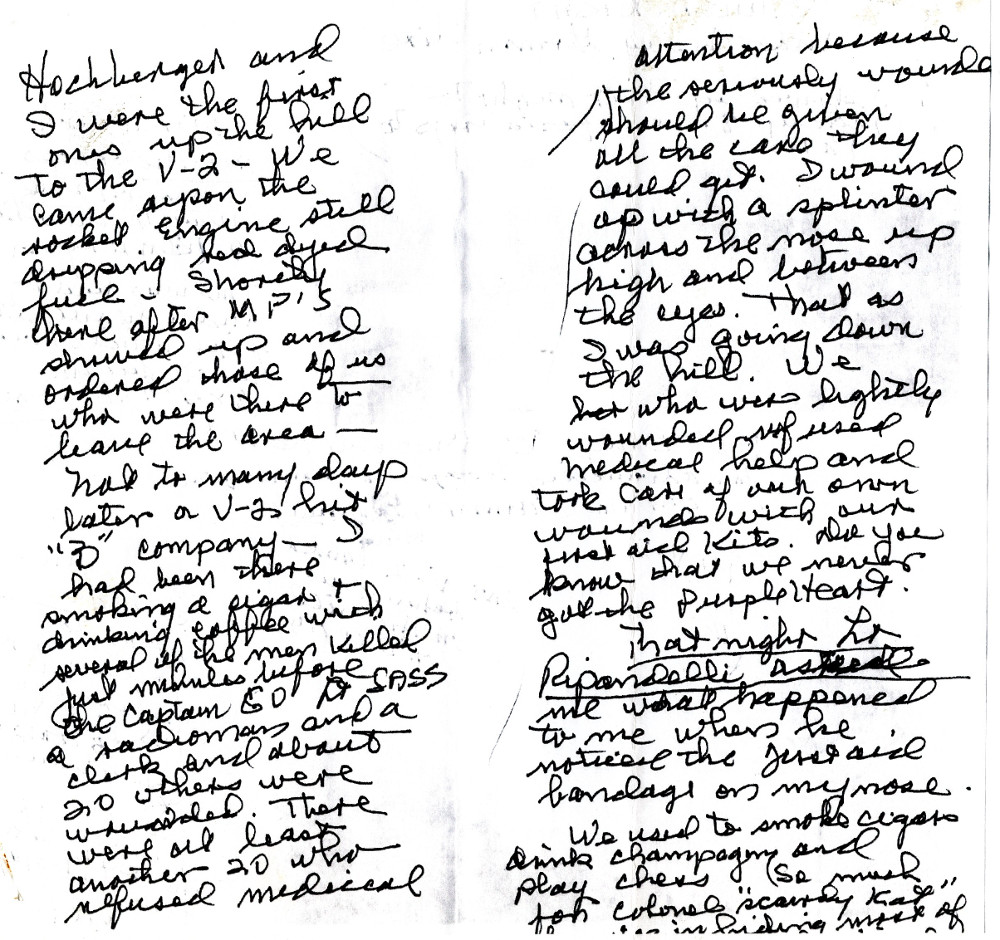 Hochberger and
I were the first
ones up the hill
to the V-2 - We
came upon the
rocket Engine still
dripping red dyed
fuel - Shortly
there after MP'S
showed up and
ordered those of us
who were there to
leave the area —
Not to many days
later a V-2 hit
"D" company — I
had been there
smoking a cigar +
drinking coffee with
several of the men Killed
just minutes before
the Captain CO Lt SASS
a radioman and a
clerk and about
20 others were
wounded. There
were at least
another 20 who
refused medical
attention because
the seriously wounde
should be given
all the care they
could get. I wound
up with a splinter
across the nose up
high and between
the eyes. That as
I was going down
the hill. We
who were lightly
wounded refused
medical help and
took Care of our own
wounds with our
first aid Kits. Do you
know that we never
got the Purple Heart.
That night Lt
Ripandelli, asked
me what happened
to me when he
noticed the first aid
bandage on my nose.
We used to smoke cigars
drink champagne and
play chess (So much
for colonel "scaredy Kat"
in hiding most of